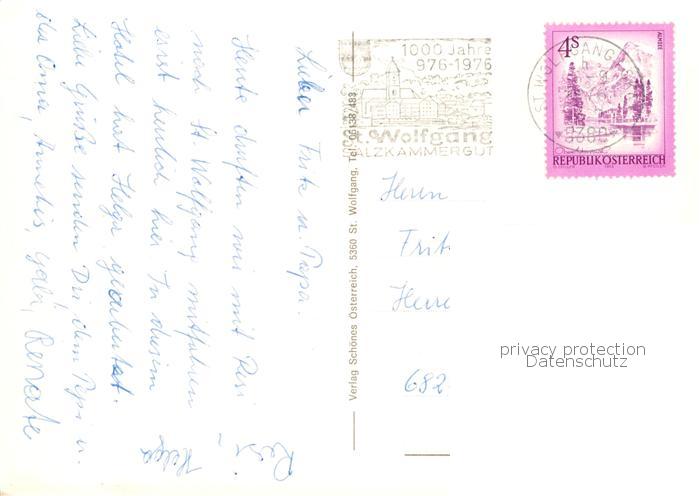 Lieber Fritz u. Papa.
Heute durften wir mit Resi
nach St. Wolfgang mitfahren
es ist herrlich hier. In diesem
Hotel hat Helga gearbeitet.
Liebe Grüße senden Dir dem Papi u.
Oma,
Renate
Resi
Helga
1000 Jahre
976-1976
St. Wolfgang
SALZKAMMERGUT
ST. WOLFGANG
4S
ALMSEE
REPUBLIK ÖSTERREICH
Verlag Schönes Österreich, 5360 St. Wolfgang, Tel. 06138/483
Herrn
Fritz
682
privacy protection
Datenschutz